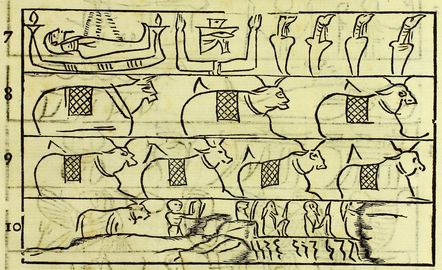 7
8
9
10